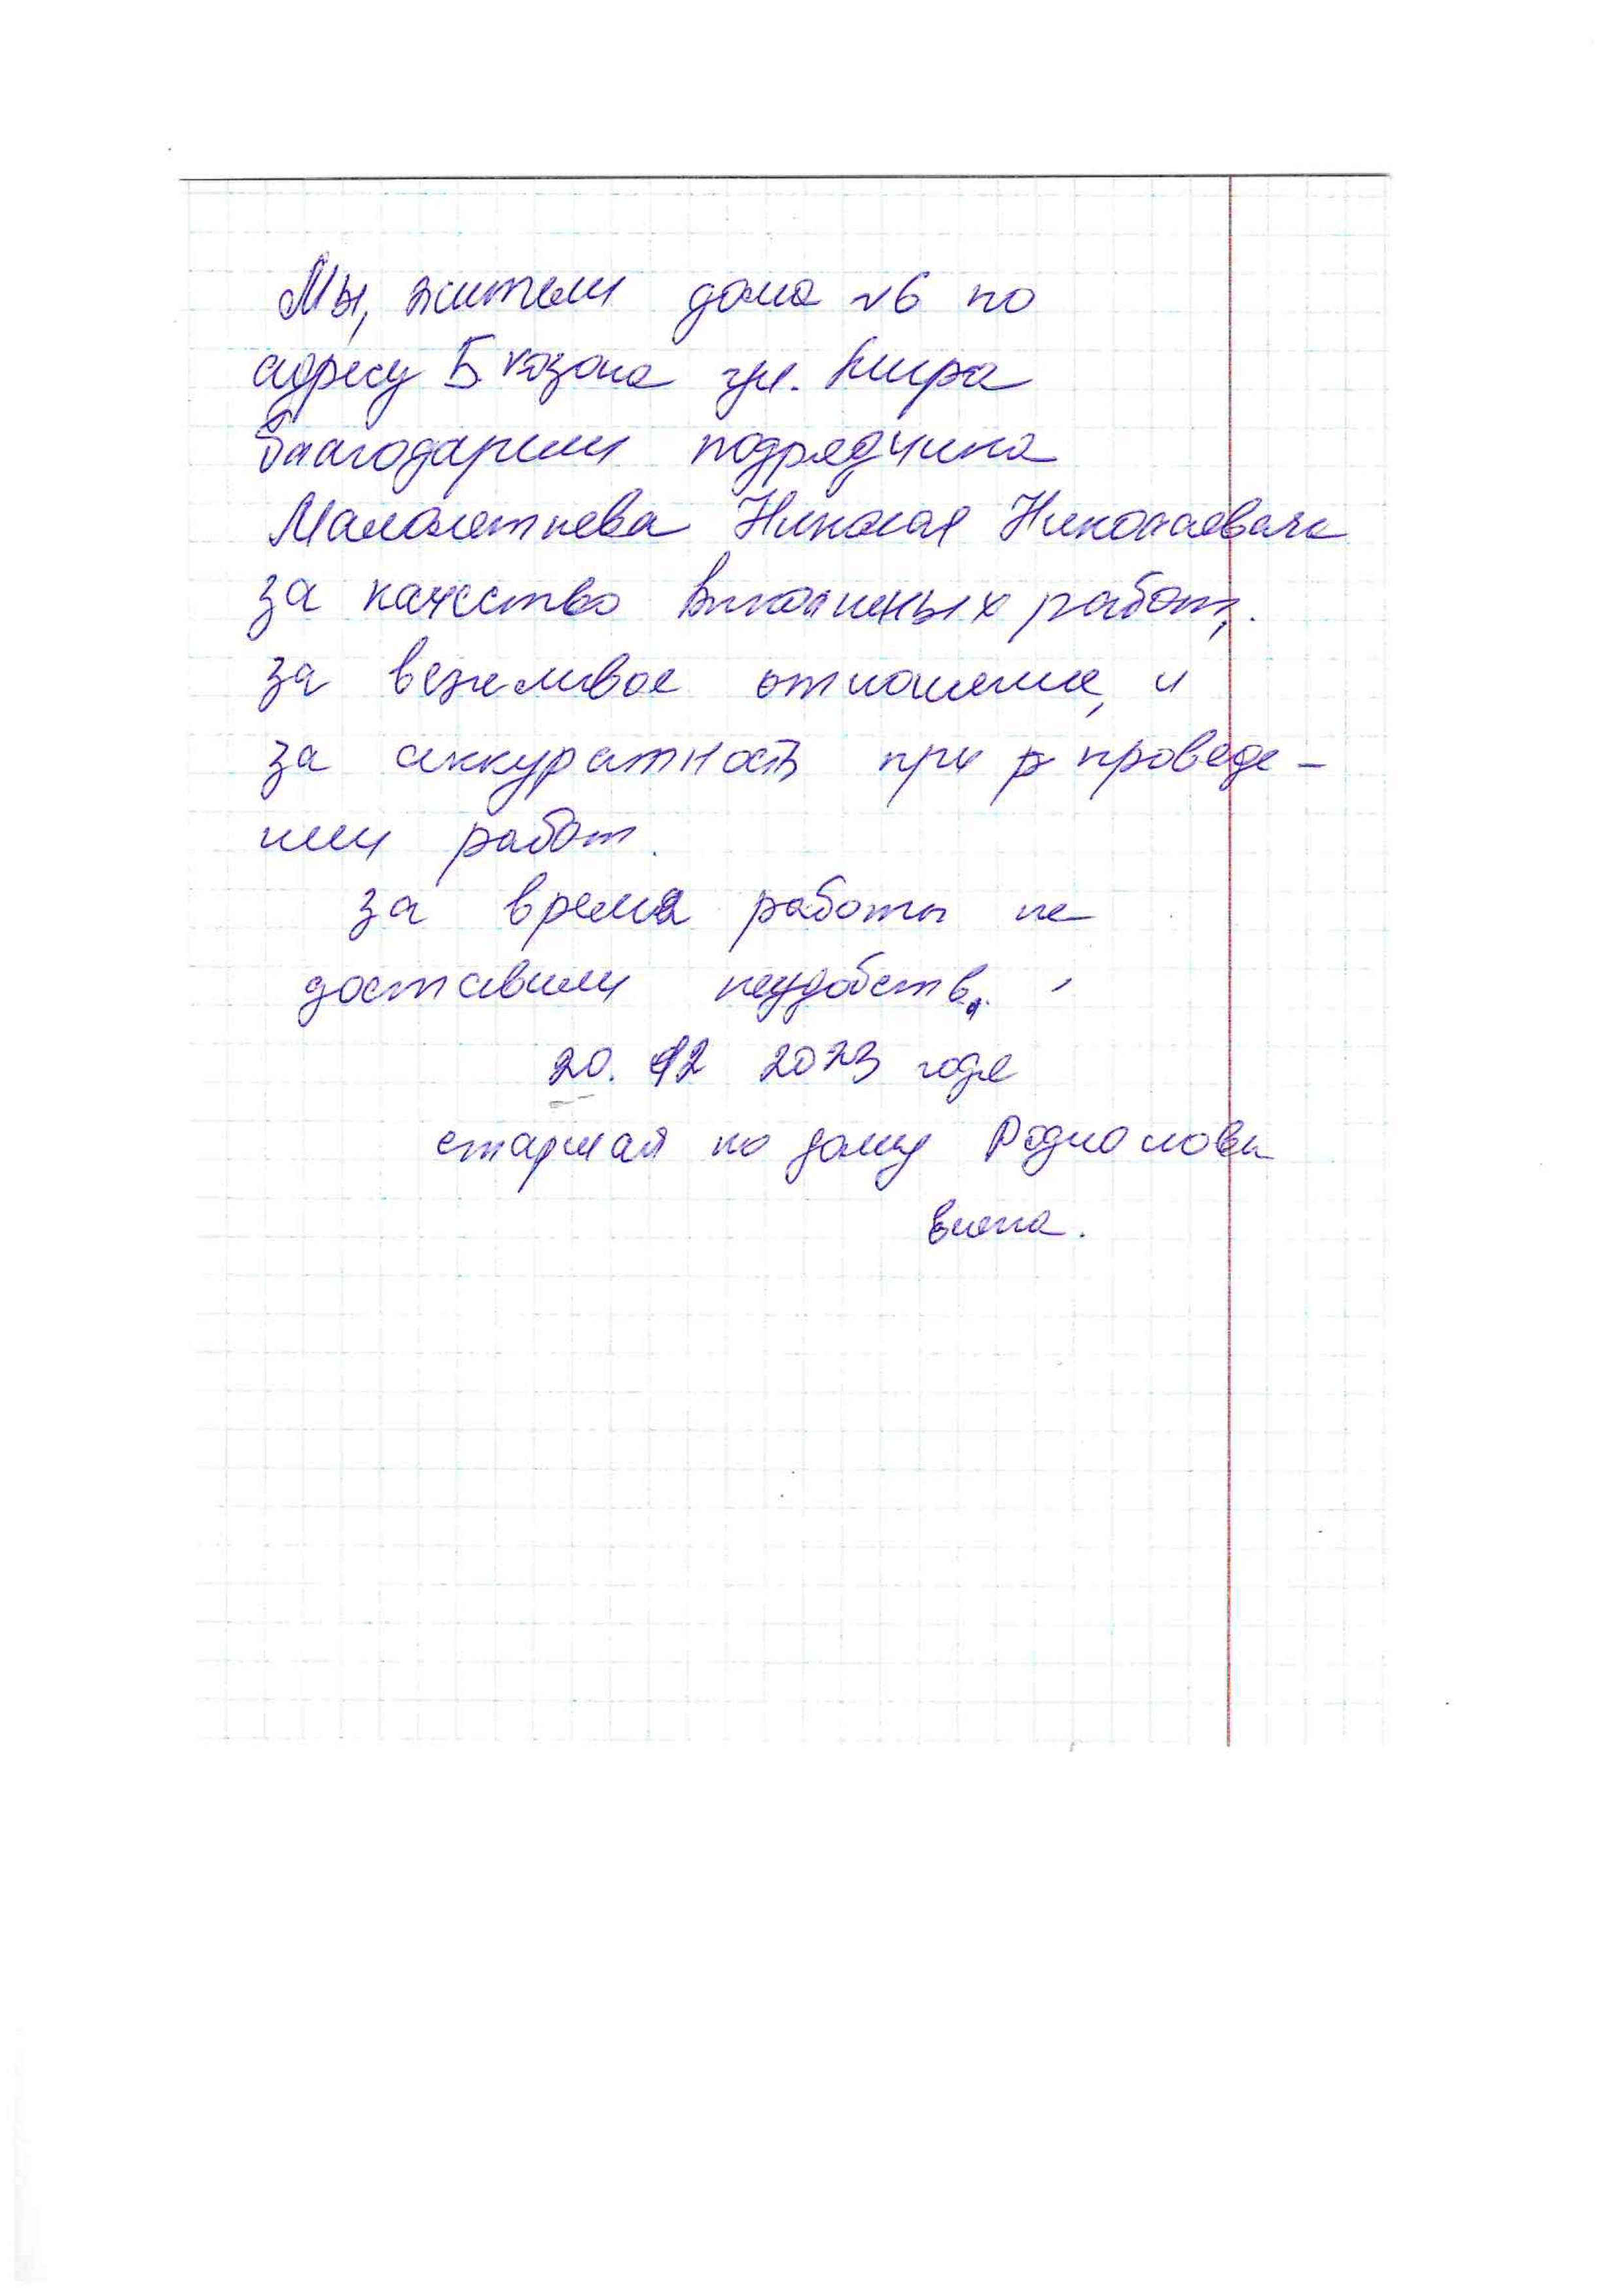 Мы, жители дома №6 по
адресу Б. Козона ул. Мира
благодарим подрядчика
Малолетнева Николая Николаевича
за качество выполненных работ,
за вежливое отношение, и
за аккуратность при проведе-
нии работ.
за время работы не
доставили неудобств.
20. 12 2023 года
старшая по дому Родионова